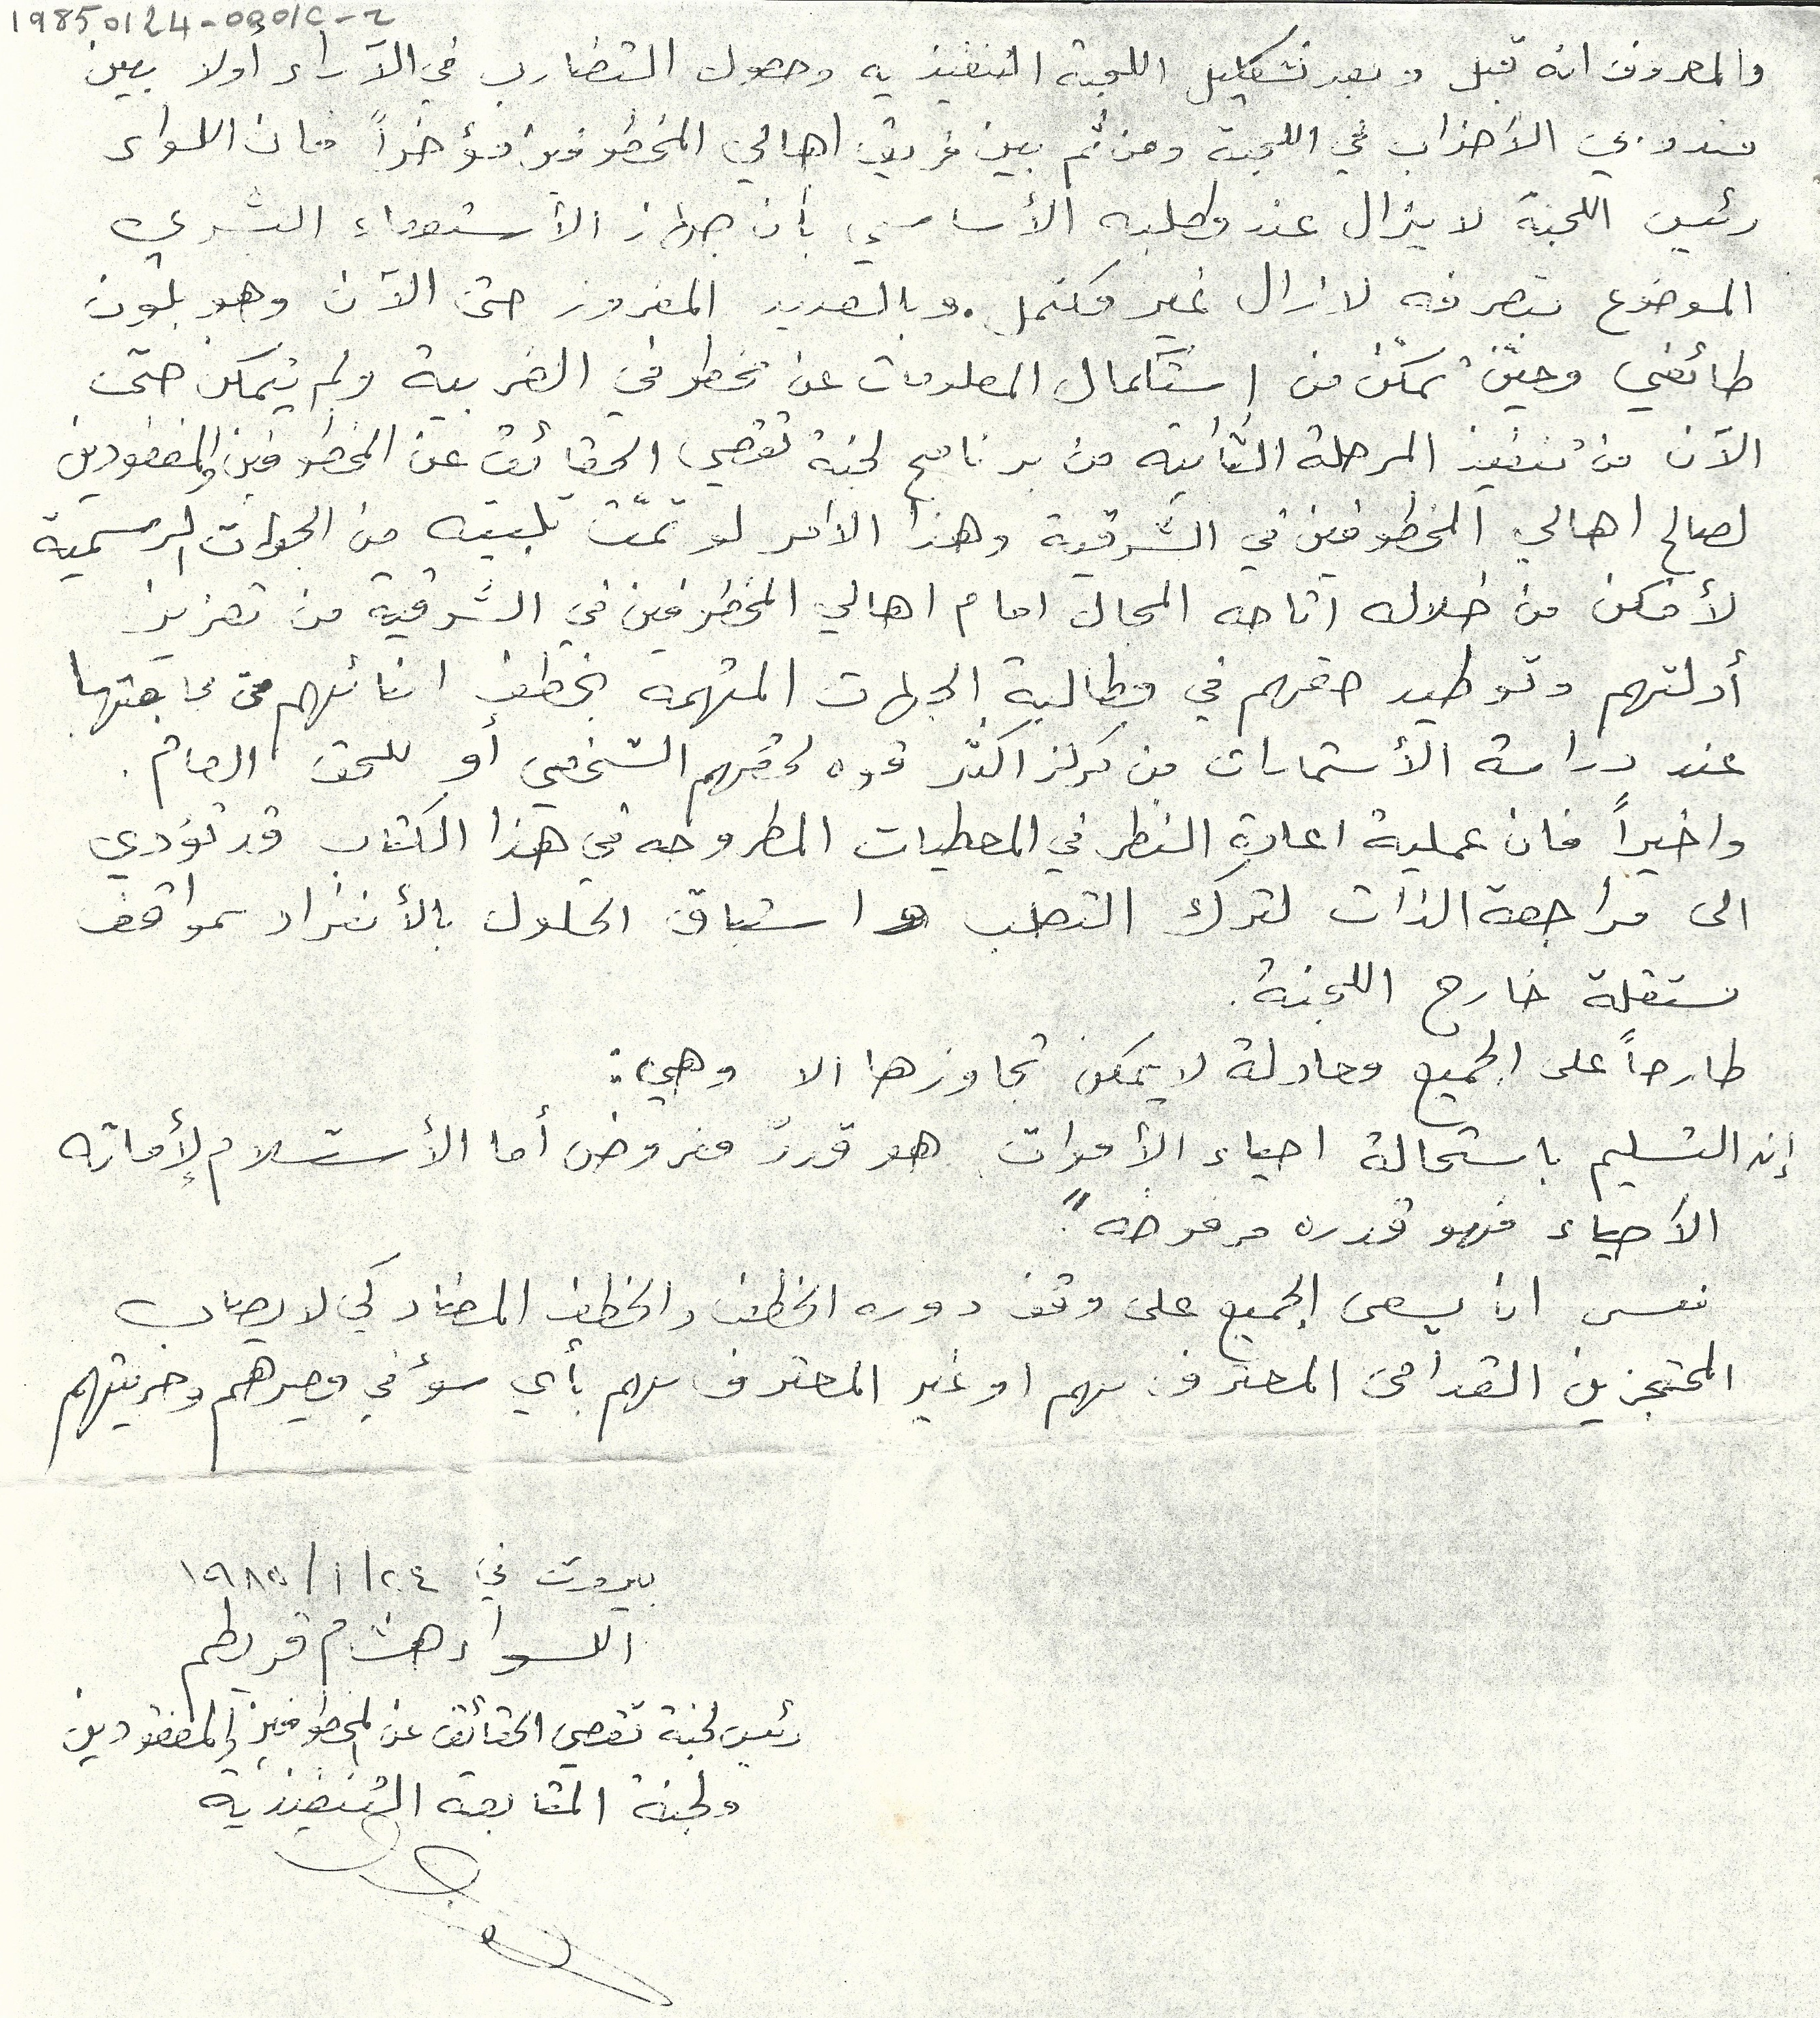 19850124-0001C-2
والمعروف انه قبل وبعد تشكيل اللجنة التنفيذيه وحصول التضارب في الآراء أولا بين
مندوبي الأحزاب في اللجنة ومن ثم بين فريق اهالي المخطوفين مؤخراً فان اللواء
رئيس اللجنة لا يزال عند مطلبه الأساسي بأن جهاز الأستقصاء البشري
الموضوع بتصرفه لا زال غير مكتمل. وبالعديد المفروز حتى الآن وهو بلون
طائفي وحيّن تمكّن من إستكمال المعلومات عن مخطوفي الغربية ولم يتمكن حتى
الآن من تنفيذ المرحلة الثانية من برنامج لجنة تقصي الحقائق عن المخطوفين والمفقودين
لصالح اهالي المخطوفين في الشرقية وهذا الامر لو تمّت تلبيته من الجهات الرسمية
لأمكن من خلاله اتاحه المجال امام اهالي المخطوفين في الشرقية من تعزيز
أدلتهم وتوطيد حقهم في مطالبة الجهات المتهمه بخطف ابنائهم متابعتها
عند دراسة الأستمارات من مركز اكثر قوه لحقهم الشخصي أو للحق العام.
واخيراً فان عملية اعادة النظر في المعطيات المطروحه في هذا الكتاب قد تؤدي
الى مراجعة الذات لترك التصلب و استباق الحلول بالأنفراد بمواقف
مستقلة خارج اللجنة.
طارحاً على الجميع معادلة لا يمكن تجاوزها الا وهي:
إن التسليم باستحالة احياء الأموات هو قدرٌ مفروض أما الأستسلام لإماته
الأحياء فهو قدره مرفوضه".
نعسى ان يسعى الجميع على وقف دوره الخطف والخطف المضاد كي لا يصاب
المحتجزين القدامى المعترف بهم او غير المعترف بهم بأي سوء في مصيرهم وحريتهم
بيروت في ٢٤/١/١٩٨٥
اللواء هشام قريطم
رئيس لجنة تقصي الحقائق عن المخطوفين والمفقودين
ولجنة المتابعة التنفيذية